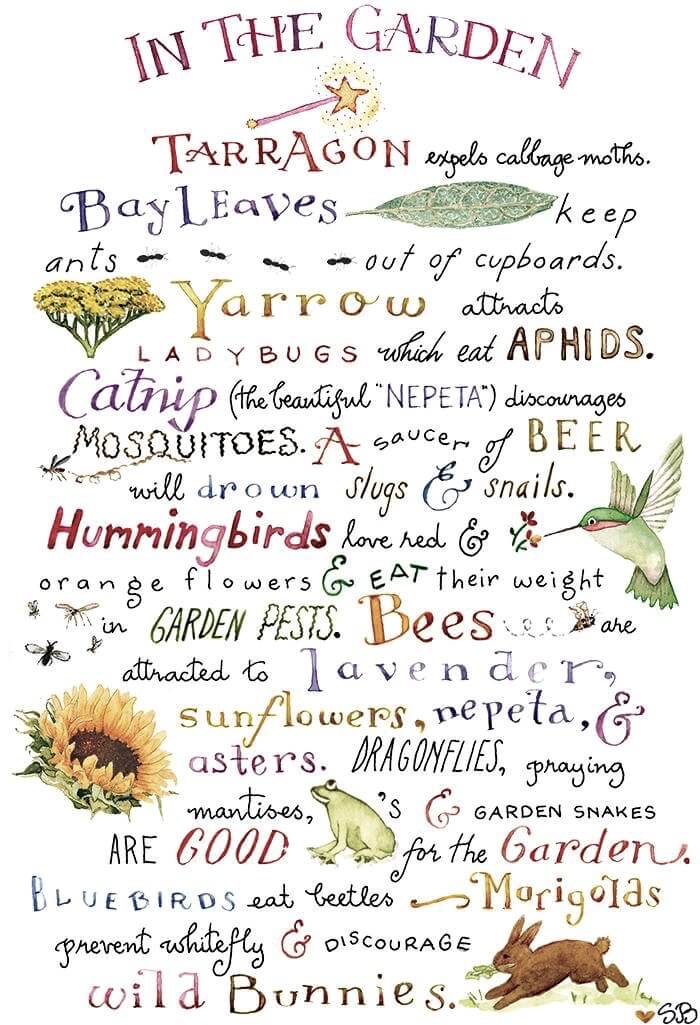 IN THE GARDEN
TARRAGON expels cabbage moths.
Bay LEaves keep
ants out of cupboards.
Yarrow attracts
LADYBUGS which eat APHIDS.
Catnip (the beautiful "NEPETA") discourages
MOSQUITOES. A saucer of BEER
will drown slugs & snails.
Hummingbirds love red &
orange flowers & EAT their weight
in GARDEN PESTS. Bees are
attracted to lavender,
sunflowers, nepeta, &
asters. DRAGONFLIES, praying
mantises, 's & GARDEN SNAKES
ARE GOOD for the Garden.
BLUEBIRDS eat beetles Marigolds
prevent whitefly & DISCOURAGE
wild Bunnies.
SB